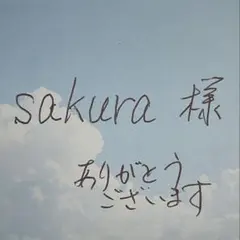 sakura 様
ありがとう
ございます